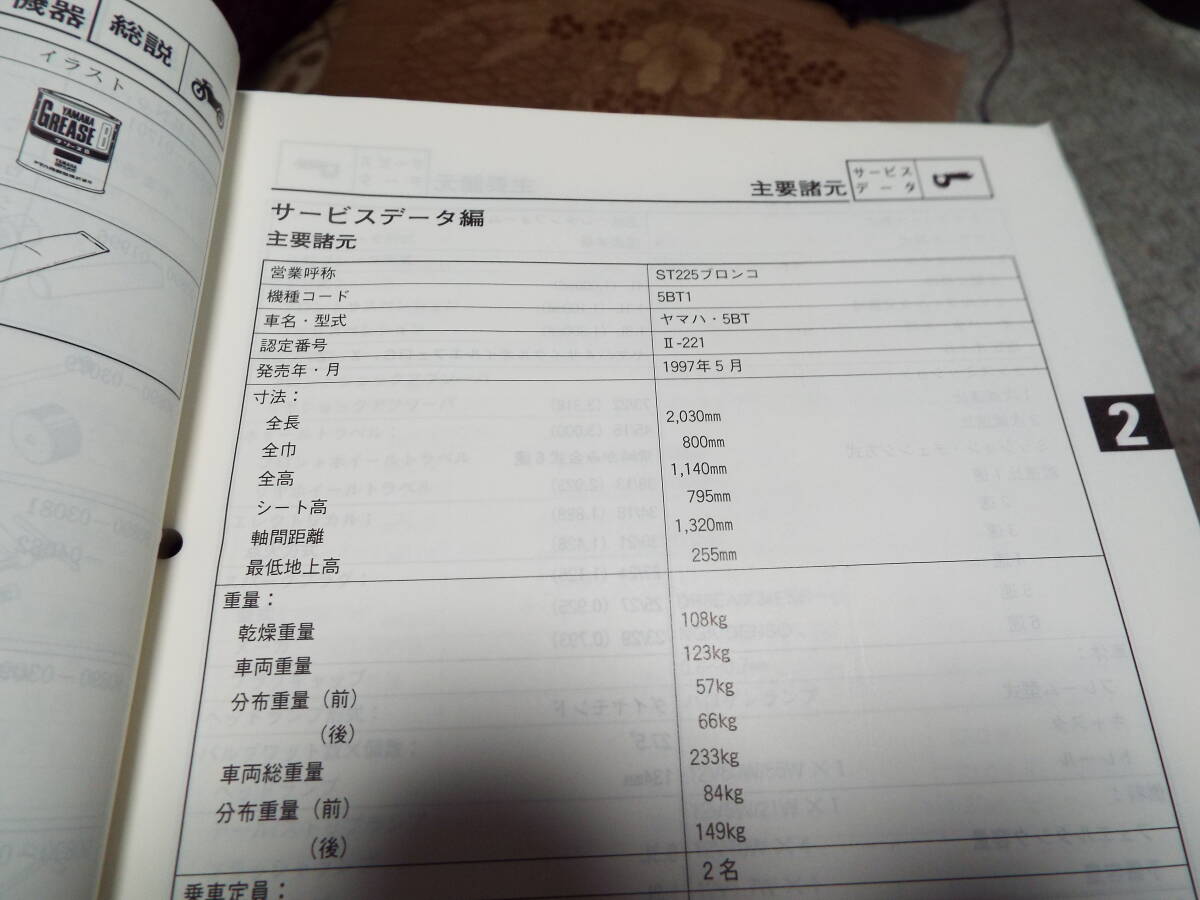 機器
総説
イラスト
YAMAHA
GREASE B
グリースB
YAMAHA
主要諸元
サービス
データ
サービスデータ編
主要諸元
営業呼称 ST225ブロンコ
機種コード 5BT1
車名・型式 ヤマハ・5BT
認定番号 Ⅱ-221
発売年・月 1997年5月
寸法：
全長 2,030mm
全巾 800mm
全高 1,140mm
シート高 795mm
軸間距離 1,320mm
最低地上高 255mm
重量：
乾燥重量 108kg
車両重量 123kg
分布重量（前） 57kg
（後） 66kg
車両総重量 233kg
分布重量（前） 84kg
（後） 149kg
乗車定員： 2名
2